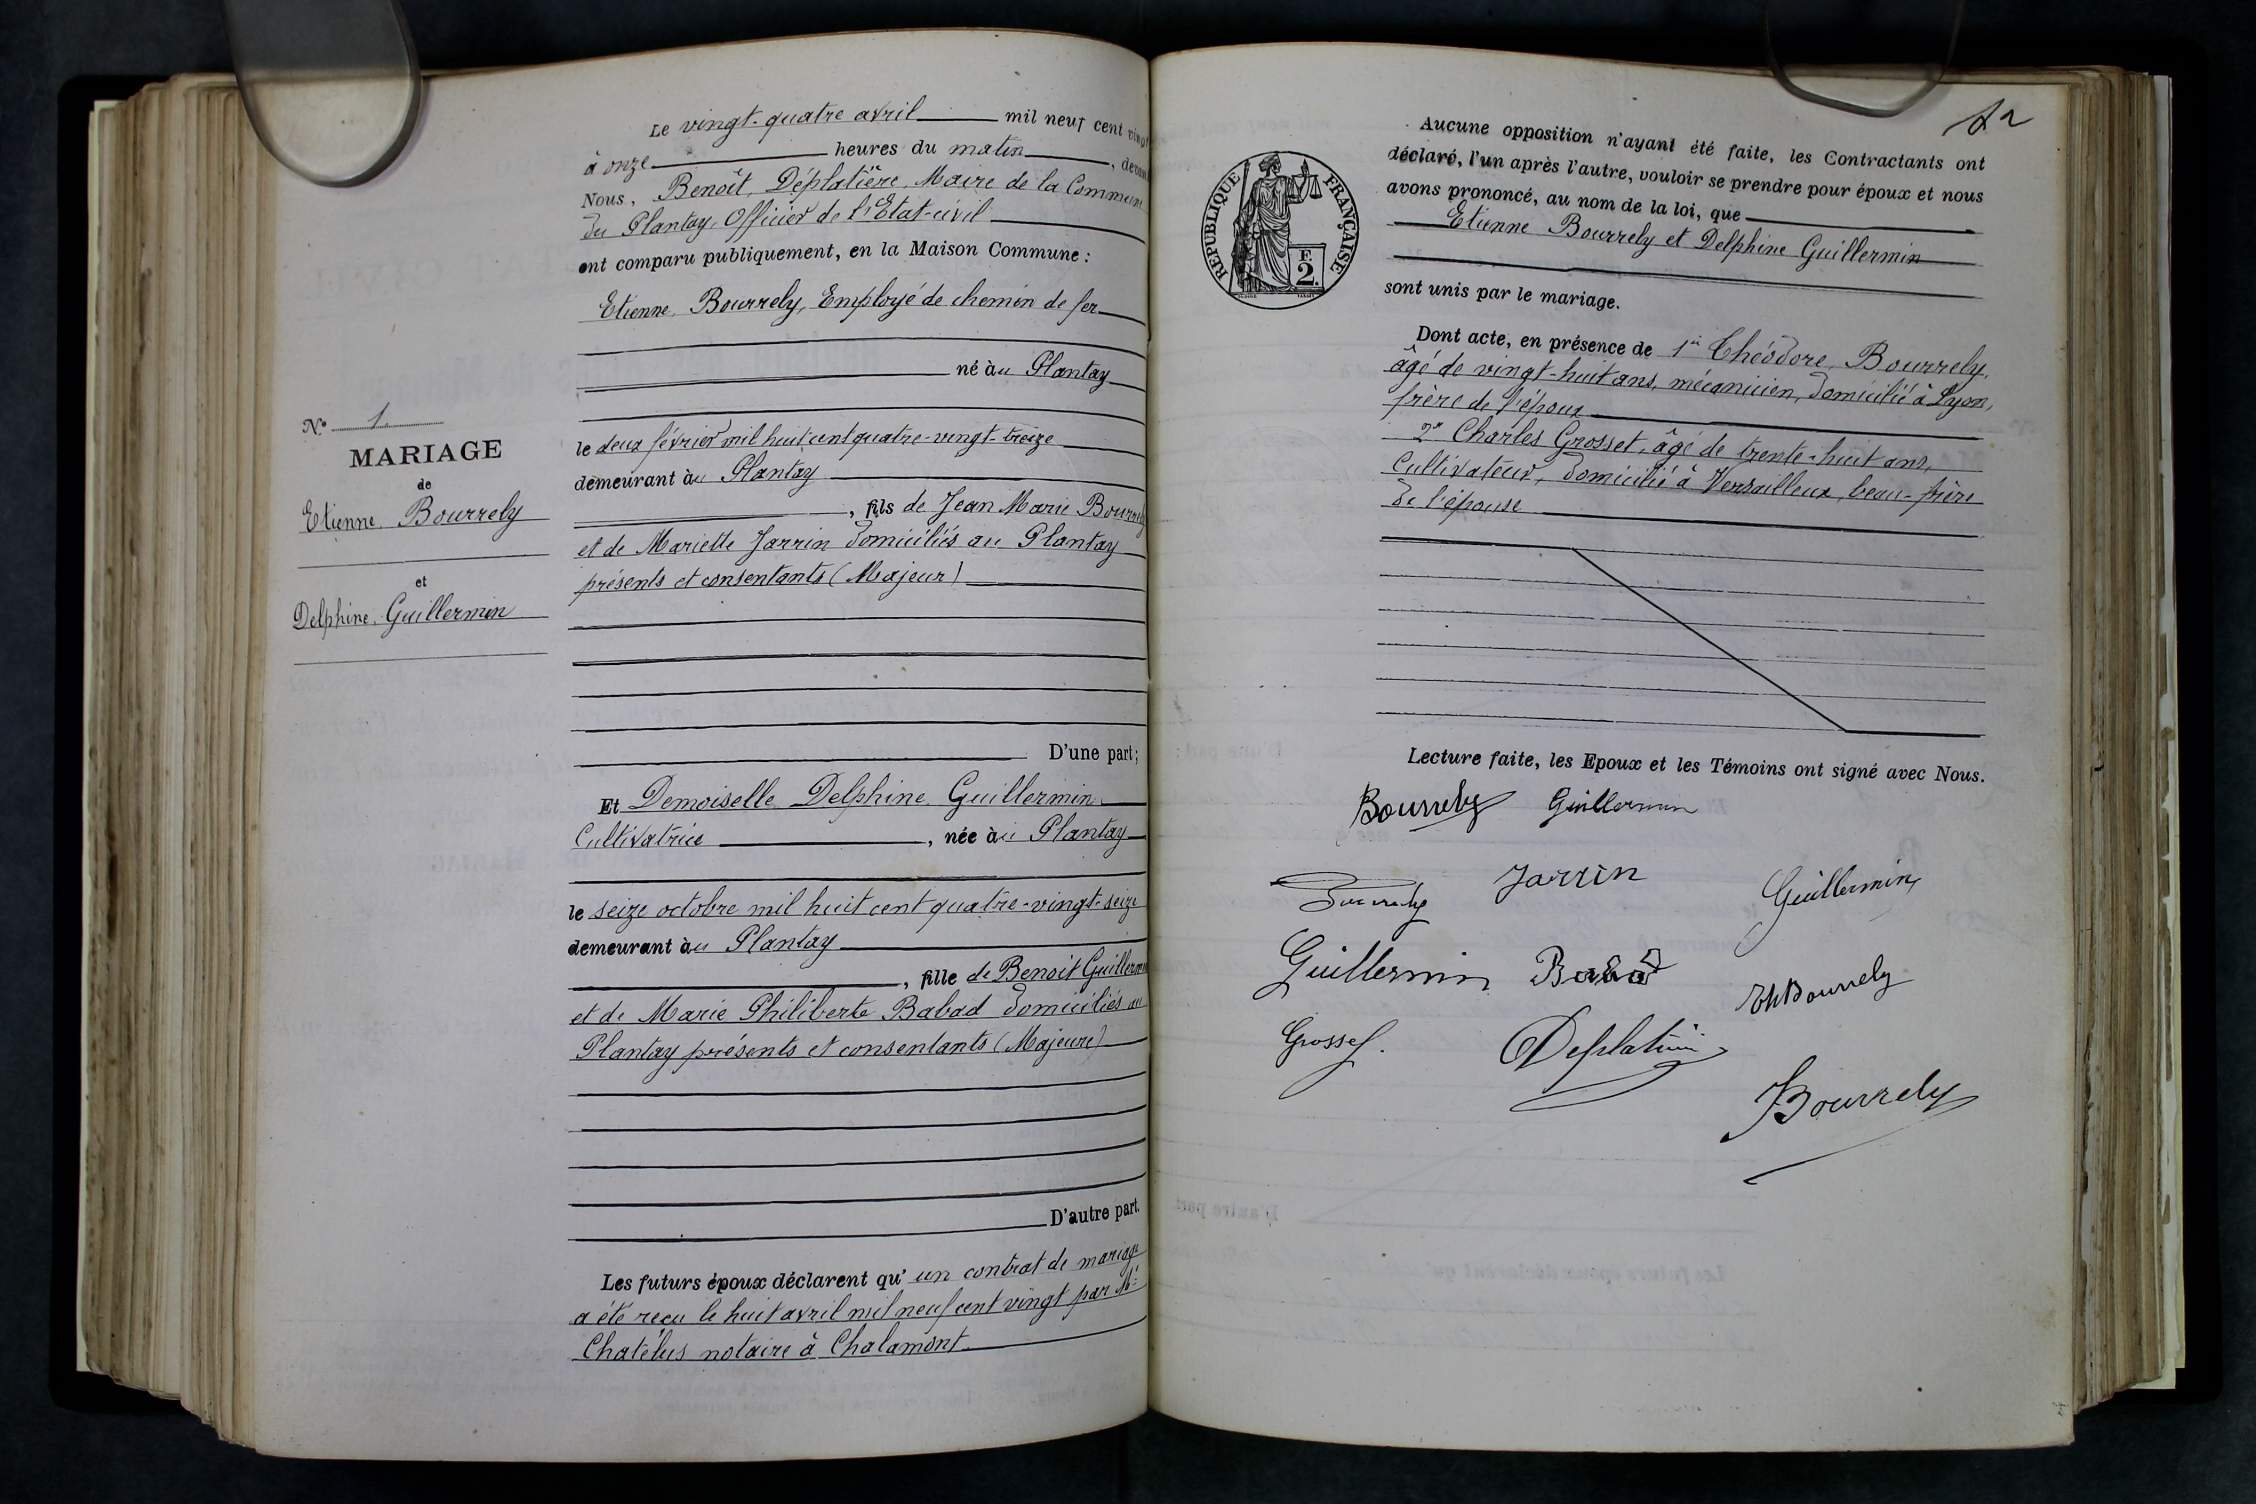 Le vingt-quatre avril mil neuf cent vingt
à onze heures du matin, devant
Nous, Benoît, Déplatière, Maire de la Commune
du Plantay, Officier de l'Etat-civil
ont comparu publiquement, en la Maison Commune :
Etienne, Bourrely, Employé de chemin de fer
né àu Plantay
le deux février mil huit cent quatre-vingt-treize
demeurant àu Plantay
, fils de Jean Marie Bourrely
et de Mariette Jarrin domiciliés au Plantay
présents et consentants (Majeur)
D'une part;
Et Demoiselle Delphine Guillermin
Cultivatrice, née àu Plantay
le seize octobre mil huit cent quatre-vingt-seize
demeurant àu Plantay
, fille de Benoit Guillermin
et de Marie Philiberte Babad domiciliés au
Plantay présents et consentants (Majeure)
D'autre part.
Les futurs époux déclarent qu' un contrat de mariage
a été reçu le huit avril mil neuf cent vingt par Me
Chatelus notaire à Chalamont
N° 1.
MARIAGE
de
Etienne Bourrely
et
Delphine Guillermin
RÉPUBLIQUE FRANÇAISE
F.
2.
Aucune opposition n'ayant été faite, les Contractants ont
déclaré, l'un après l'autre, vouloir se prendre pour époux et nous
avons prononcé, au nom de la loi, que
Etienne Bourrely et Delphine Guillermin
sont unis par le mariage.
Dont acte, en présence de 1er Théodore, Bourrely,
âgé de vingt-huit ans, mécanicien, domicilié à Lyon,
frère de l'époux
2e Charles Grosset, âgé de trente-huit ans,
Cultivateur, domicilié à Versailleux, beau-frère
de l'épouse
Lecture faite, les Epoux et les Témoins ont signé avec Nous.
Bourrely Guillermin
Bourrely Jarrin Guillermin
Guillermin Babad
Th Bourrely
Grosset Deplatière
Bourrely